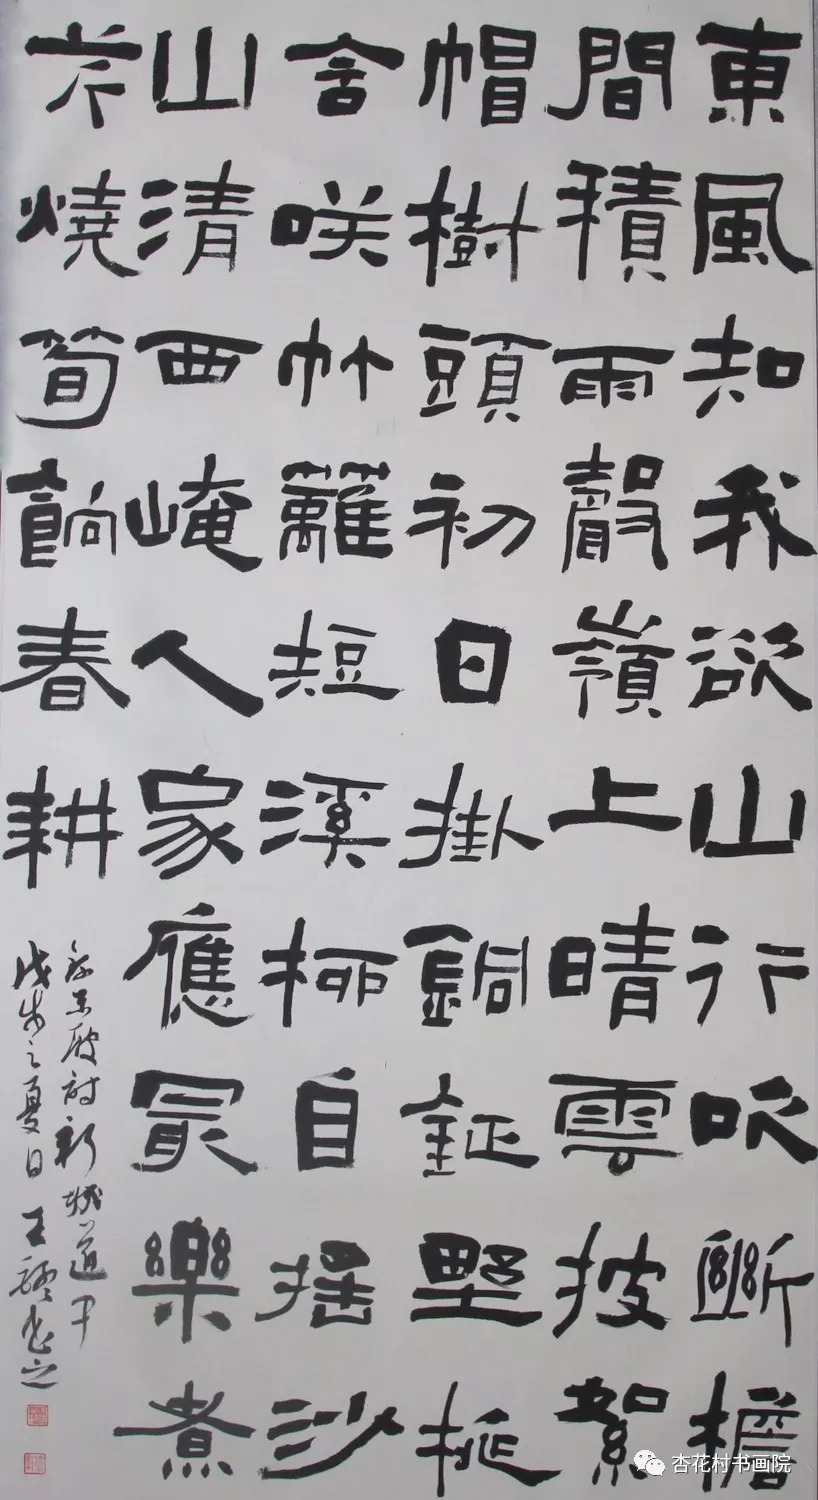 東風知我欲山行吹斷檐
間積雨聲嶺上晴雲披絮
帽樹頭初日掛銅鉦野桃
含咲竹籬短溪柳自搖沙
山清西崦人家應最樂煮
芹燒筍餉春耕
東坡詩新城道中
戊戌之夏日王書之
杏花村书画院